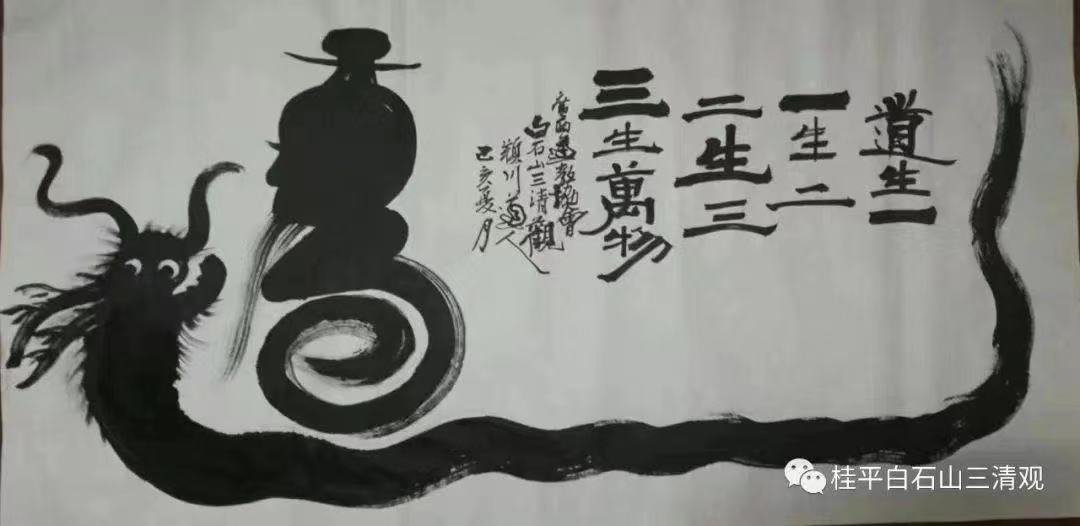 道生一
一生二
二生三
三生萬物
廣西道教協會
白石山三清觀
穎川道人
己亥夏月
桂平白石山三清观